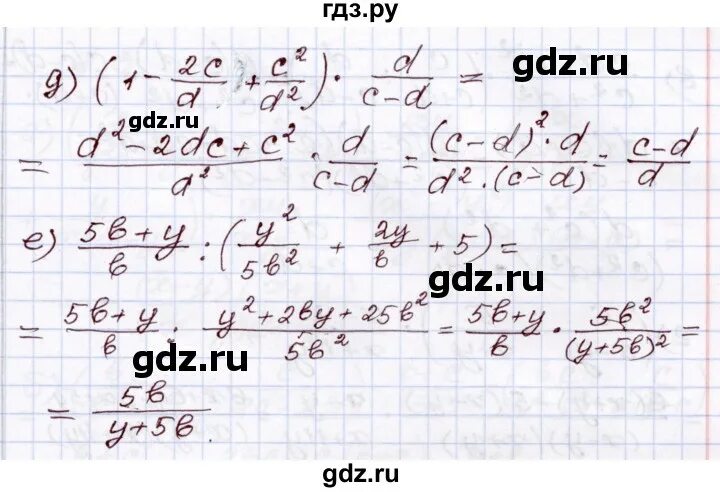 гдз.ру
д) (1 - 2c/d + c²/d²) · d/(c-d) =
gdz.ru
gdz.ru
= (d² - 2dc + c²)/d² · d/(c-d) = ((c-d)² · d)/(d² · (c-d)) = (c-d)/d
е) (5b+y)/b : (y²/5b² + 2y/b + 5) =
gdz.ru
= (5b+y)/b : (y² + 2by + 25b²)/5b² = (5b+y)/b · 5b²/(y+5b)² =
gdz.ru
= 5b/(y+5b).
gdz.ru
gdz.ru